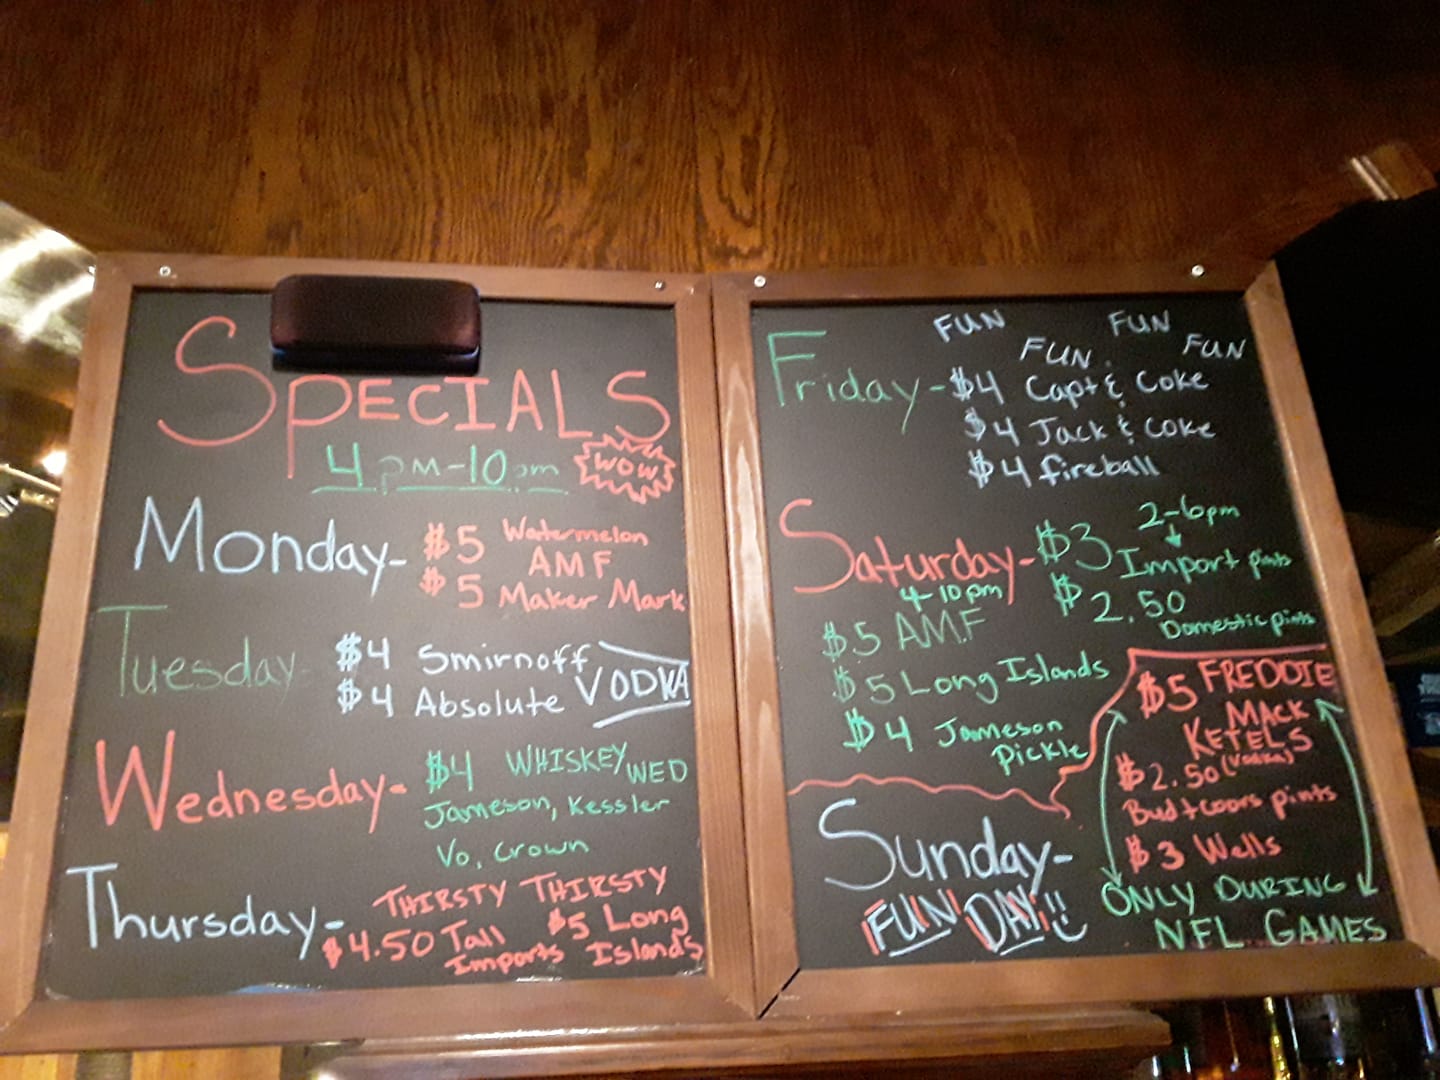 SPECIALS
4pm-10pm WOW
Monday- $5 Watermelon
AMF
$5 Maker Mark
Tuesday $4 Smirnoff
$4 Absolute VODKA
Wednesday- $4 WHISKEY WED
Jameson, Kessler
Vo, Crown
Thursday- THIRSTY THIRSTY
$4.50 Tall Imports $5 Long Islands
FUN FUN
FUN FUN
Friday- $4 Capt & Coke
$4 Jack & Coke
$4 fireball
2-6pm
Saturday- $3 Import pints
$2.50
Domestic pints
4-10pm
$5 AMF
$5 Long Islands
$4 Jameson
Pickle
Sunday-
FUN DAY!!
$5 FREDDIE
MACK
KETELS
(Vodka)
$2.50
Bud + Coors pints
$3 Wells
ONLY DURING
NFL GAMES